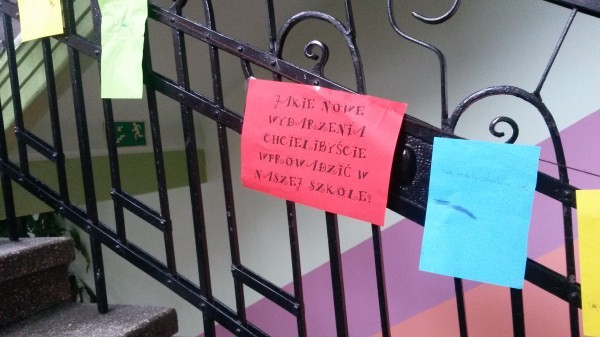 JAKIE NOWE
WYDARZENIA
CHCIELIBYŚCIE
WPROWADZIĆ W
NASZEJ SZKOLE?